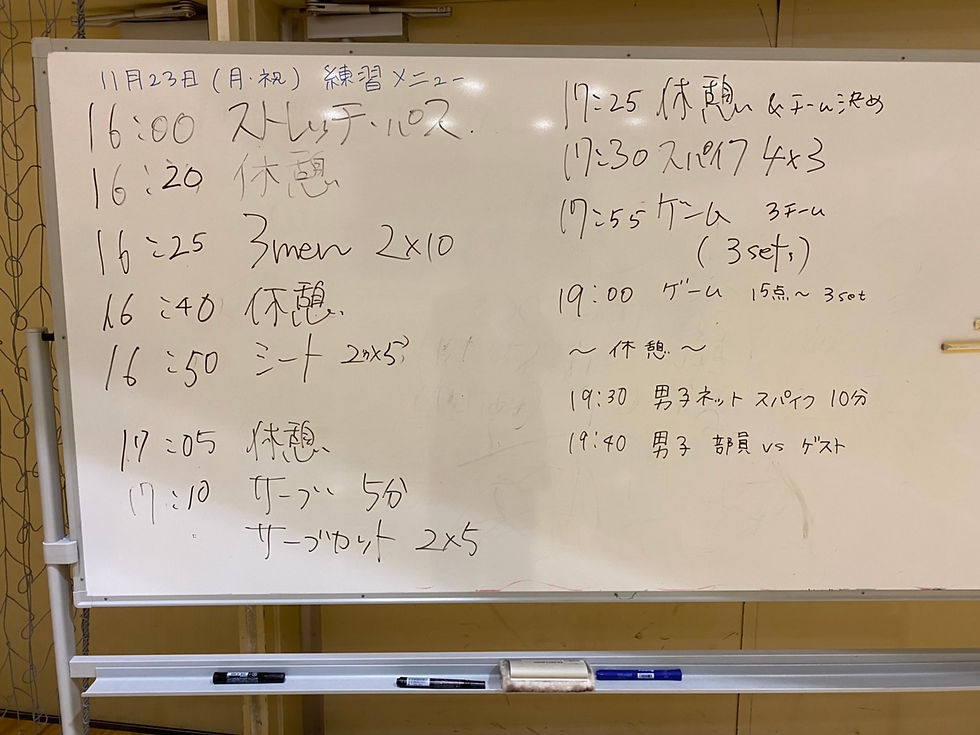 11月23日(月・祝) 練習メニュー
16:00 ストレッチ・パス
16:20 休憩
16:25 3men 2×10
16:40 休憩
16:50 シート 2n×5
17:05 休憩
17:10 サーブ 5分
サーブカット 2×5
17:25 休憩 & チーム決め
17:30 スパイク 4×3
17:55 ゲーム 3チーム
(3sets)
19:00 ゲーム 15点〜 3set
〜 休憩 〜
19:30 男子ネット スパイク 10分
19:40 男子 部員 vs ゲスト